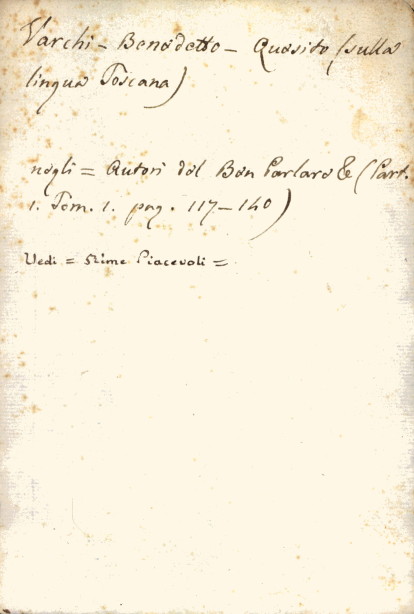 Varchi - Benedetto - Quesito (sulla
lingua Toscana)
negli = Autori del Ben Parlare & (Part.
1. Tom. 1. pag. 117-140)
Vedi = Rime Piacevoli =